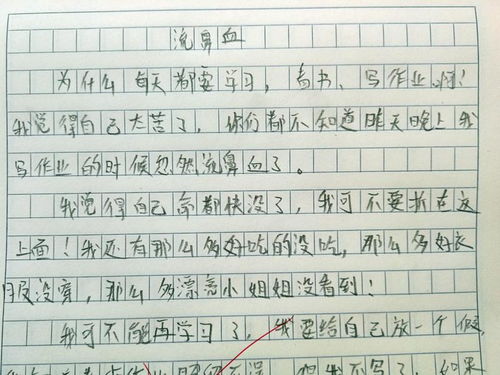 流鼻血
为什么每天都要学习，看书、写作业啊！
我觉得自己太苦了，你们都不知道昨天晚上我
写作业的时候忽然流鼻血了。
我觉得自己命都快没了，我可不要折在这
上面！我还有那么多好吃的没吃，那么多好衣
服没穿，那么多漂亮小姐姐没看到！
我可不能再学习了，我要给自己放一个假，